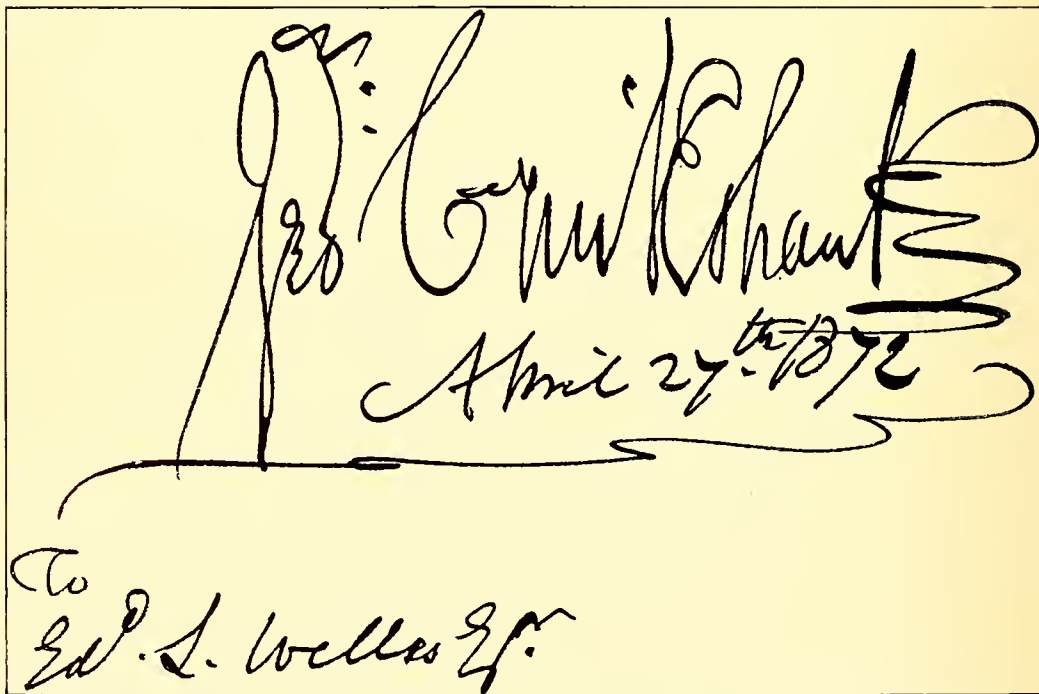 Geo. Cruikshank
April 27th. 1872
To
Edd. L. Welles Esqr.